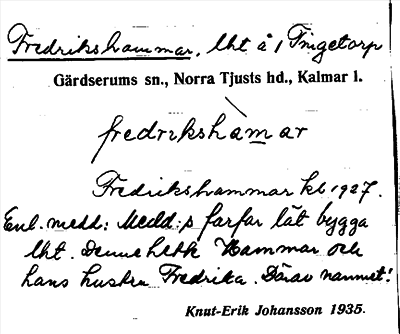 Fredrikshammar, lht å 1 Tingetorp
Gärdserums sn., Norra Tjusts hd., Kalmar l.
fredrikshamar
Fredrikshammar kl 1927.
Enl. medd: Medd:s farfar lät bygga
lht. Denne hette Hammar och
hans hustru Fredrika. Därav namnet!
Knut-Erik Johansson 1935.